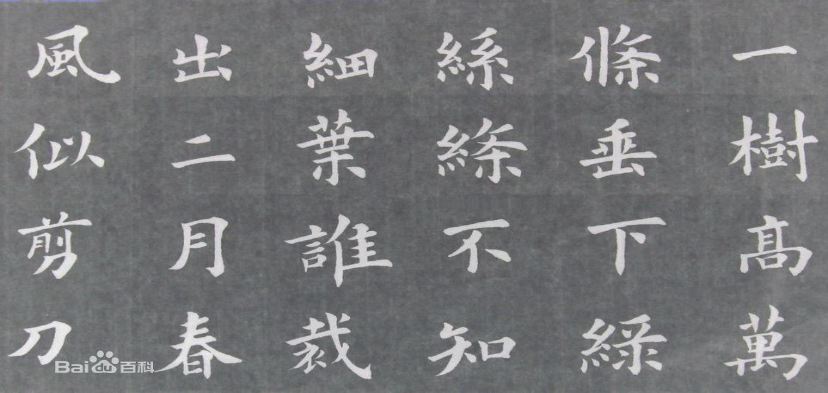 一樹高萬
條垂下綠
絲絛不知
細葉誰裁
出二月春
風似剪刀
Baidu百科